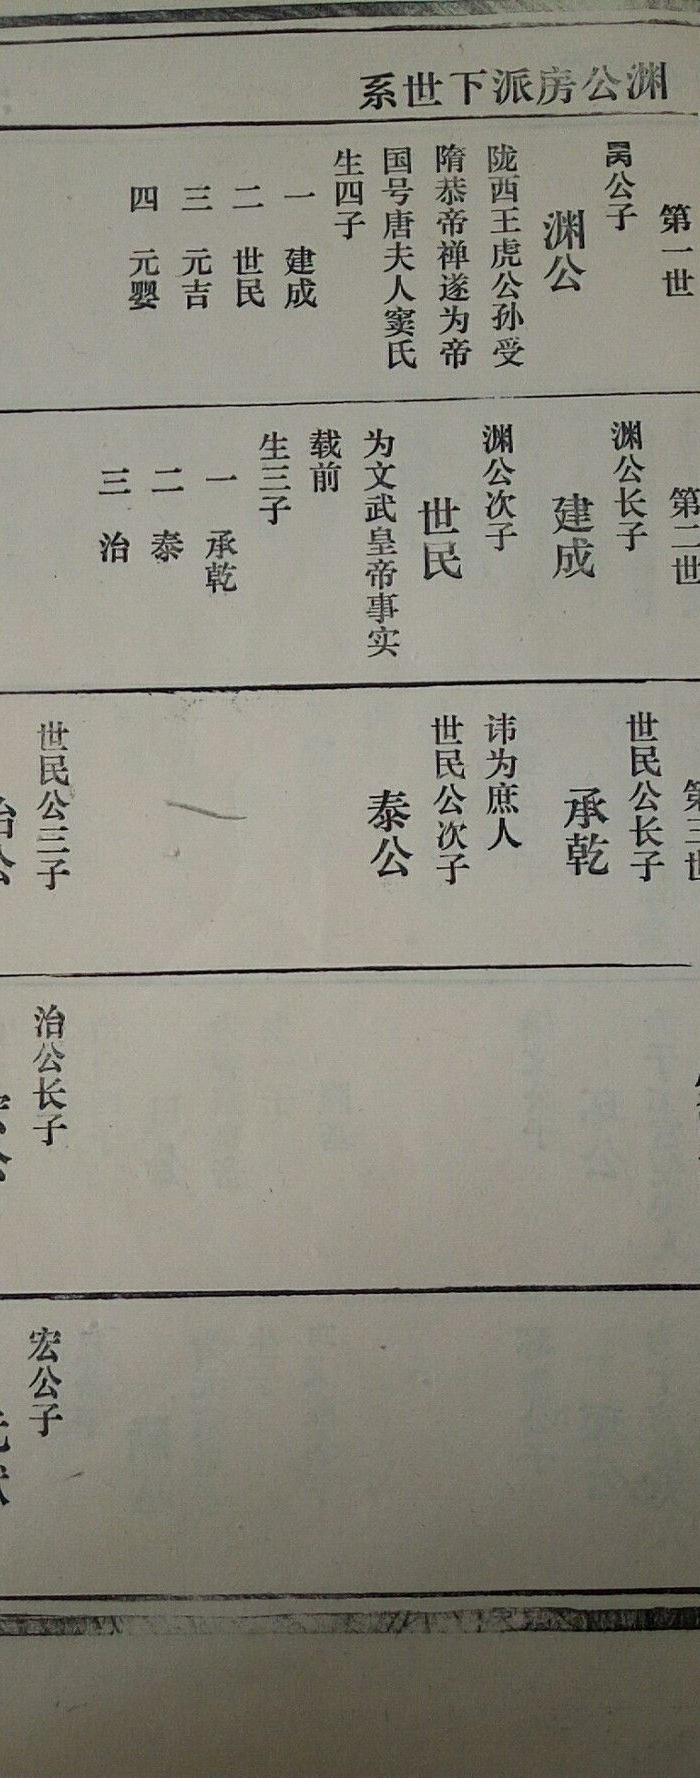 渊公房派下世系
第一世
昺公子
渊公
陇西王虎公孙受
隋恭帝禅遂为帝
国号唐夫人窦氏
生四子
一 建成
二 世民
三 元吉
四 元婴
第二世
渊公长子
建成
渊公次子
世民
为文武皇帝事实
载前
生三子
一 承乾
二 泰
三 治
第三世
世民公长子
承乾
讳为庶人
世民公次子
泰公
世民公三子
治公
治公长子
宏公
宏公子